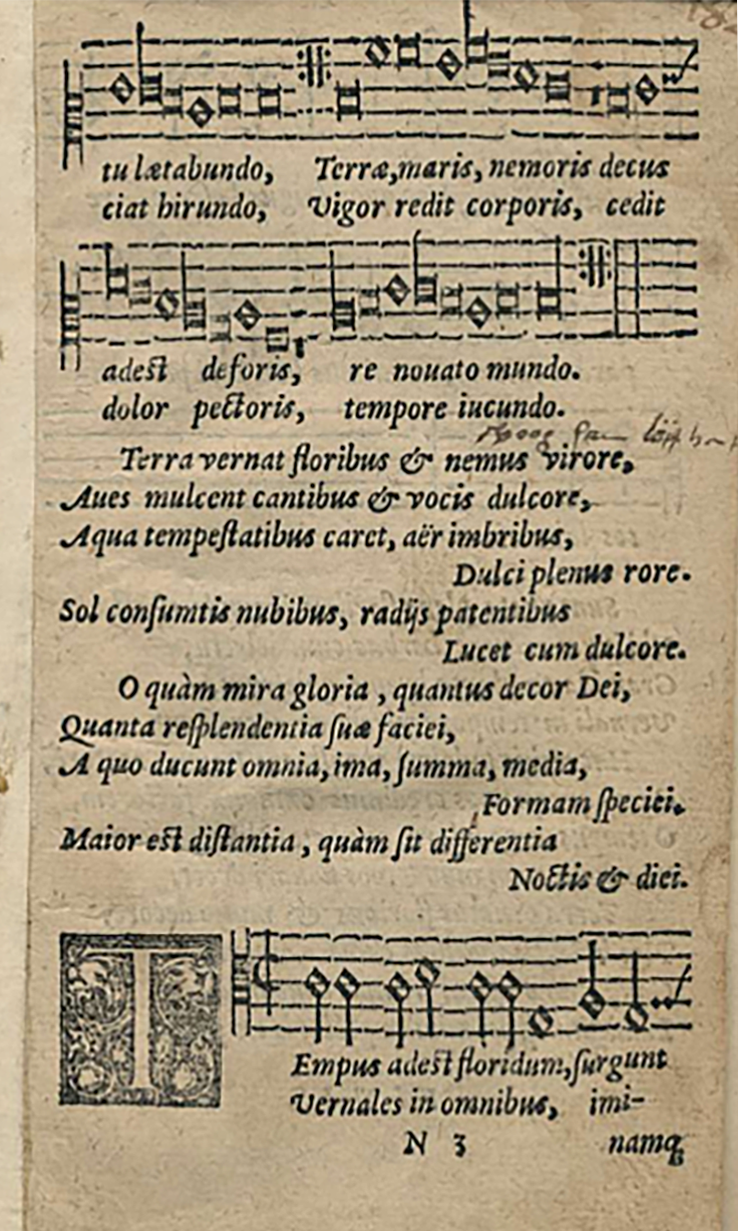 tu lætabundo, Terræ, maris, nemoris decus
ciat hirundo, Vigor redit corporis, cedit
adest deforis, re nouato mundo.
dolor pectoris, tempore iucundo.
Terra vernat floribus & nemus virore,
Aues mulcent cantibus & vocis dulcore,
Aqua tempeſtatibus caret, aër imbribus,
Dulci plenus rore.
Sol conſumtis nubibus, radijs patentibus
Lucet cum dulcore.
O quàm mira gloria, quantus decor Dei,
Quanta reſplendentia ſuæ faciei,
A quo ducunt omnia, ima, ſumma, media,
Formam ſpeciei.
Maior est diſtantia, quàm ſit differentia
Noctis & diei.
TEmpus adest floridum, ſurgunt
Vernales in omnibus, imi-
N 3 namq₃